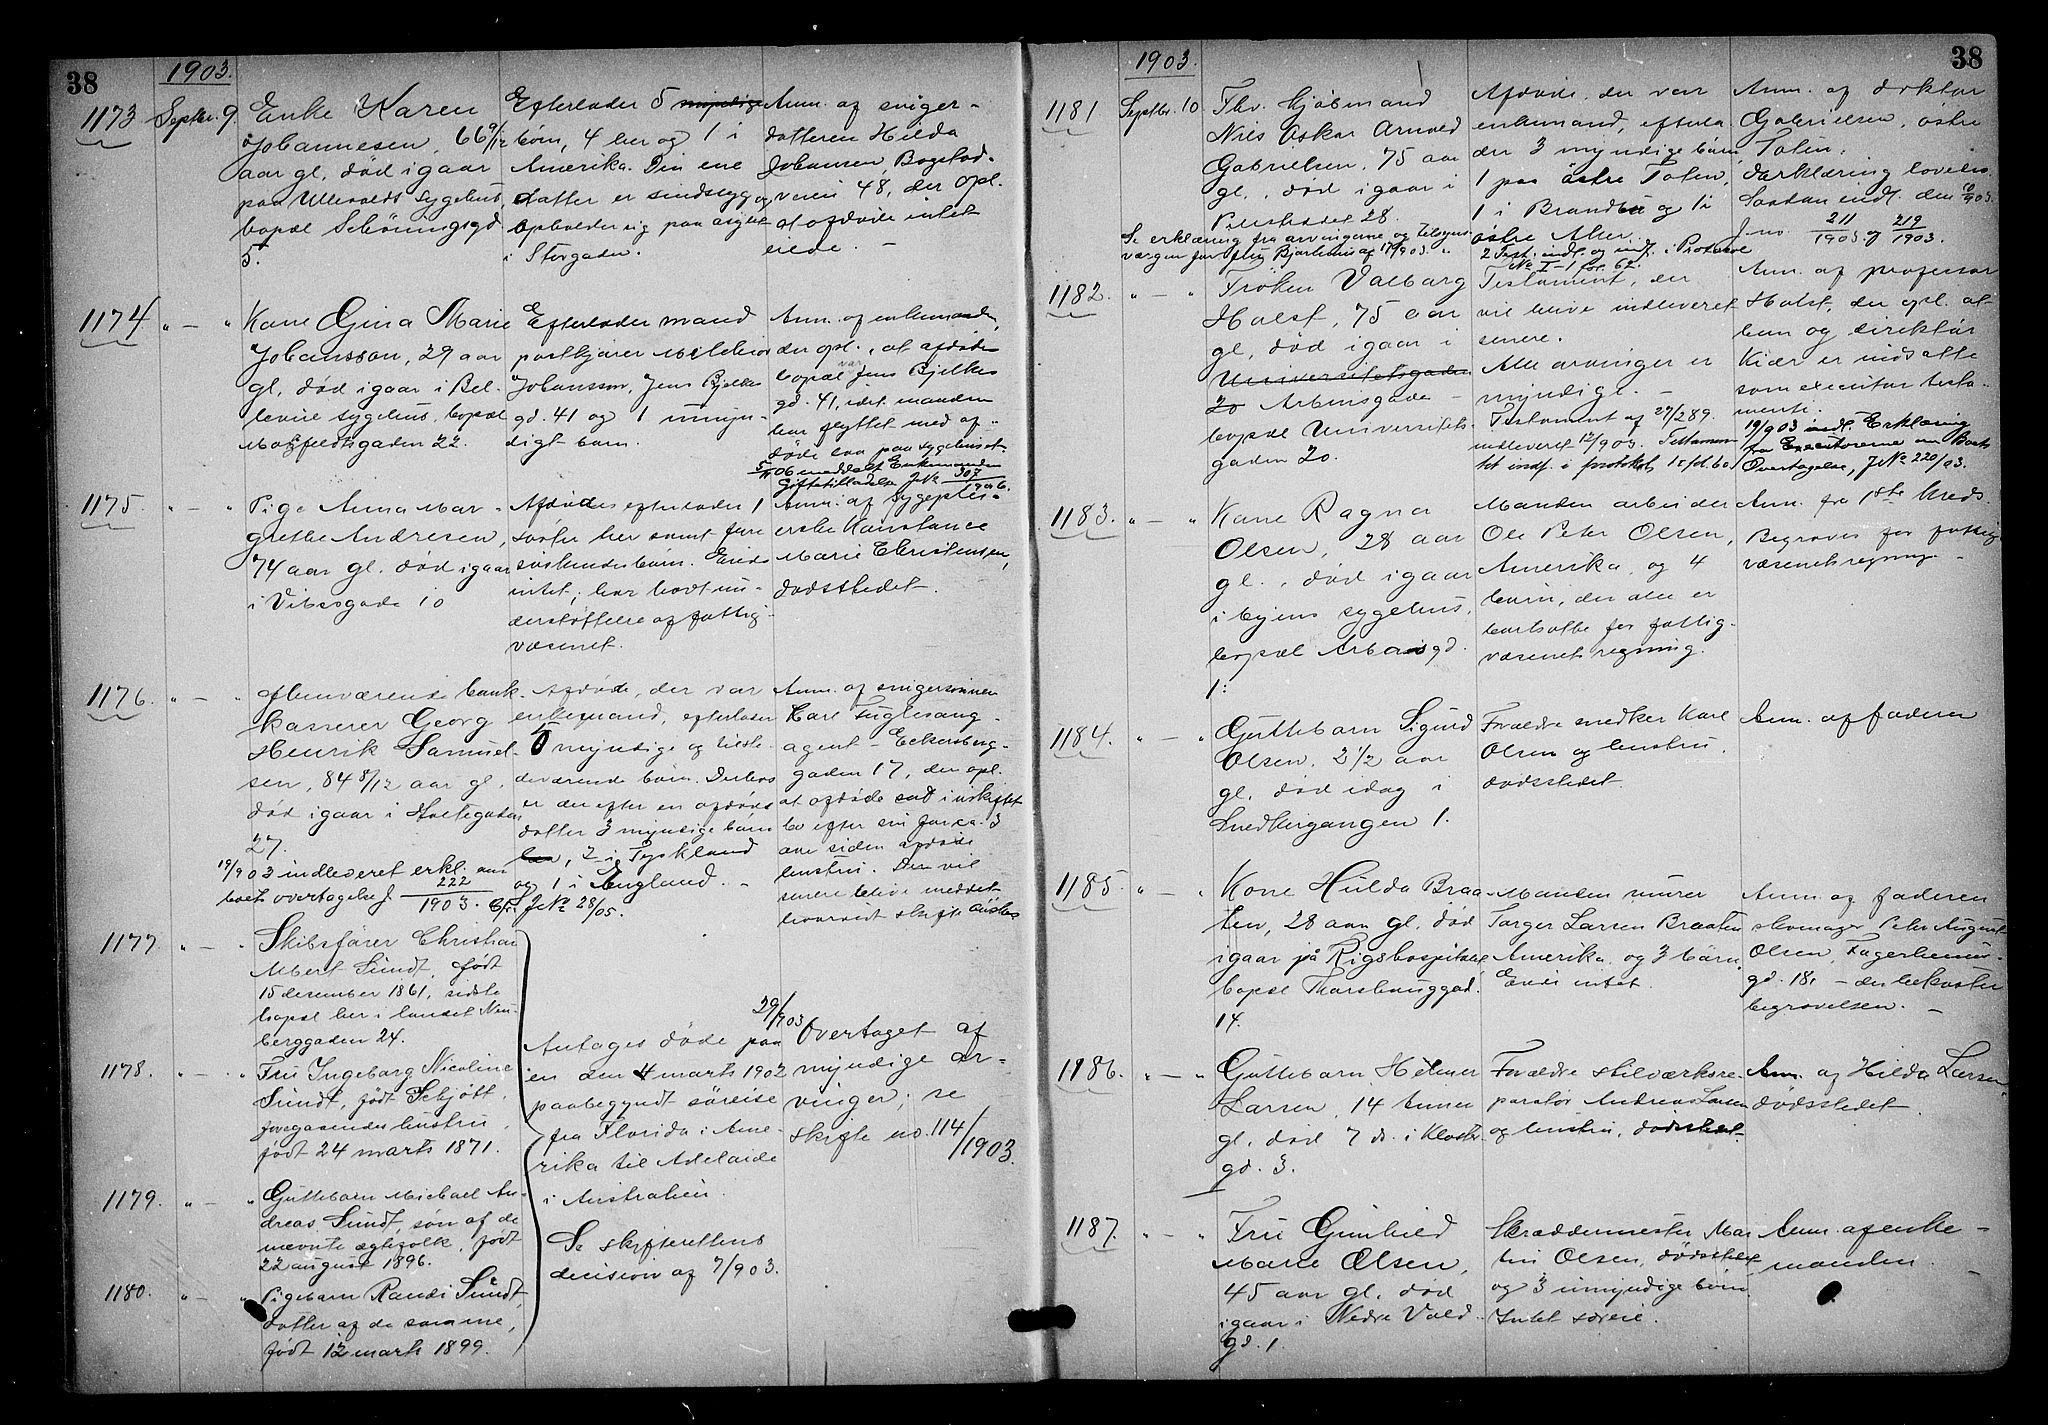 38
1903.
1173
Septbr. 9.
Enke Karen
Johannesen, 66 9/12
aar gl., død igaar
paa Ullevolds sygehus,
bopæl Schöningsgd
5.
Efterlader 5 myndige
börn, 4 her og 1 i
Amerika. Den ene
datter er sindssyg og
opholder sig paa asylet
i Storgaden.
Anm. af sviger-
datteren Hilda
Johansen, Bogstad-
veien 48, der opl.
at afdøde intet
eiede. -
1174
" — "
Kone Gina Marie
Johansson, 29 aar
gl., død igaar i Bel-
levue sygehus, bopæl
Motzfeldtsgaden 22.
Efterlader mand
postkjører Melchior
Johansson, Jens Bjelkes
gd. 41 og 1 umyn-
digt barn.
Anm. af enkemanden,
der opl., at afdøde
bopæl var Jens Bjelkes
gd. 41, idet manden
har flyttet med af-
døde laa paa sygehuset.
5/06 meddelt Enkemanden
Giftetilladelse J.No 307/1906.
1175.
" — "
Pige Anna Mar-
grethe Andresen,
74 aar gl. død igaar
i Vibesgade 10
Afdøde efterlader 1
søster her samt flere
söskendebörn. Eiede
intet; har havt un-
derstøttelse af fattig-
væsenet.
Anm. af sygeplei-
erske Konstance
Marie Christensen,
dødsstedet.
1176.
" — "
Fhenværende bank-
kasserer Georg
Henrik Samuel-
sen, 84 8/12 aar gl.,
død igaar i Holtegaden
27.
19/903 indleveret erkl. om
boets overtagelse J 222/1903.
Afdøde, der var
enkemand, efterlader
5 myndige og tilste-
deværende börn. Derhos
er der efter en afdød
datter 3 myndige börn
her, 2 i Tyskland
og 1 i England. -
J.No 28/05.
Anm. af svigersönnen
Carl Fuglesang
agent - Eckersberg-
gaden 17, der opl.
at afdøde sad i uskiftet
bo efter sin for ca. 3
aar siden afdøde
hustru. Der vil
senere blive meddelt
hvorvidt skifte önskes
1177.
" — "
Skibsfører Christian
Albert Sundt, født
15 desember 1861, sidste
bopæl her i landet Neu-
berggaden 24.
1178.
" — "
Fru Ingeborg Nicoline
Sundt, født Schjøtt,
foregaaendes hustru,
født 24 marts 1871.
1179.
" — "
Guttebarn Michael An-
dreas Sundt, søn af de
nævnte ægtefolk, født
22 august 1896.
1180.
" — "
Pigebarn Randi Sundt,
datter af de samme,
født 12 marts 1899.
Antages døde paa
en den 4 marts 1902
paabegyndt søreise
fra Florida i Ame-
rika til Adelaide
i Australien.
Se skifterettens
decision af 7/903.
29/903 Overtaget af
myndige ar-
vinger; se
skifte no. 114/1903.
38
1903.
1181
Septbr. 10
Fhv. Kjöbmand
Nils Oskar Arnold
Gabrielsen, 75 aar
gl., død igaar i
Pilestrædet 28.
Se erklæring fra arvingerne og tilsyns-
værgen for af 17/903.
Afdøde, der var
enkemand, efterla-
der 3 myndige börn,
1 paa østre Toten,
1 i Brandbu og 1 i
østre Aker.
2 Test. indl. og indf. i Protocol
No I-1 fol. 62.
Anm. af doktor
Gabrielsen, østre
Toten.
Darklæring loves.
Saadan indl. den 10/903.
J.no. 211/1903 og 219/1903.
1182.
" — "
Frøken Valborg
Holst, 75 aar
gl., død igaar i
Universitetsgaden
20 Arbinsgade -
bopæl Universitets-
gaden 20.
Testament, der
vil blive indleveret
senere.
Alle arvinger er
myndige. -
Testament af 27/2 89.
indleveret 12/903. Testamen-
tet indf. i protokol 1 fol. 60.
Anm. af professor
Holst, der opl. at
han og direktør
Kiær er indsatte
som executor testa-
menti.
19/903 indl. Erklæring
fra Executorerne om Boets
Overtagelse, J.No 220/03.
1183.
" — "
Kone Ragna
Olsen, 28 aar
gl., død igaar
i byens sygehus,
bopæl Arboisgd.
1.
Manden arbeider
Ole Peter Olsen,
Amerika, og 4
børn, der alle er
bortsatte for fattig-
væsenets regning.
Anm. fra 1ste kreds.
Begraves for fattig-
væsenets regning. -
1184.
" — "
Guttebarn Sigurd
Olsen, 2 1/2 aar
gl., død idag i
Snedkergangen 1.
Forældre snedker Karl
Olsen og hustru,
dødsstedet.
Anm. af faderen
1185.
" — "
Kone Hulda Braa-
ten, 28 aar gl., død
igaar på Rigshospitalet
bopæl Thorshauggd.
14.
Manden murer
Torger Larsen Braaten
Amerika, og 3 børn.
Eiede intet.
Anm. af faderen
stenhugger Peter August
Olsen, Fagerheims-
gd. 18, - der bekoster
begravelsen. -
1186.
" — "
Guttebarn Helmer
Larsen, 14 dage
gl., død 7 ds. i Kloster-
gd. 3.
Forældre støberiværksre-
paratør Andreas Larsen
og hustru, dødsstedet
Anm. af Hilda Larsen
dødsstedet.
1187.
" — "
Fru Gunhild
Marie Olsen,
45 aar gl., død
igaar i Nedre Vold-
gd. 1.
Skræddermester Mar-
tin Olsen, dødsstedet
og 3 umyndige børn
Intet særeie.
Anm. af enke-
manden. -